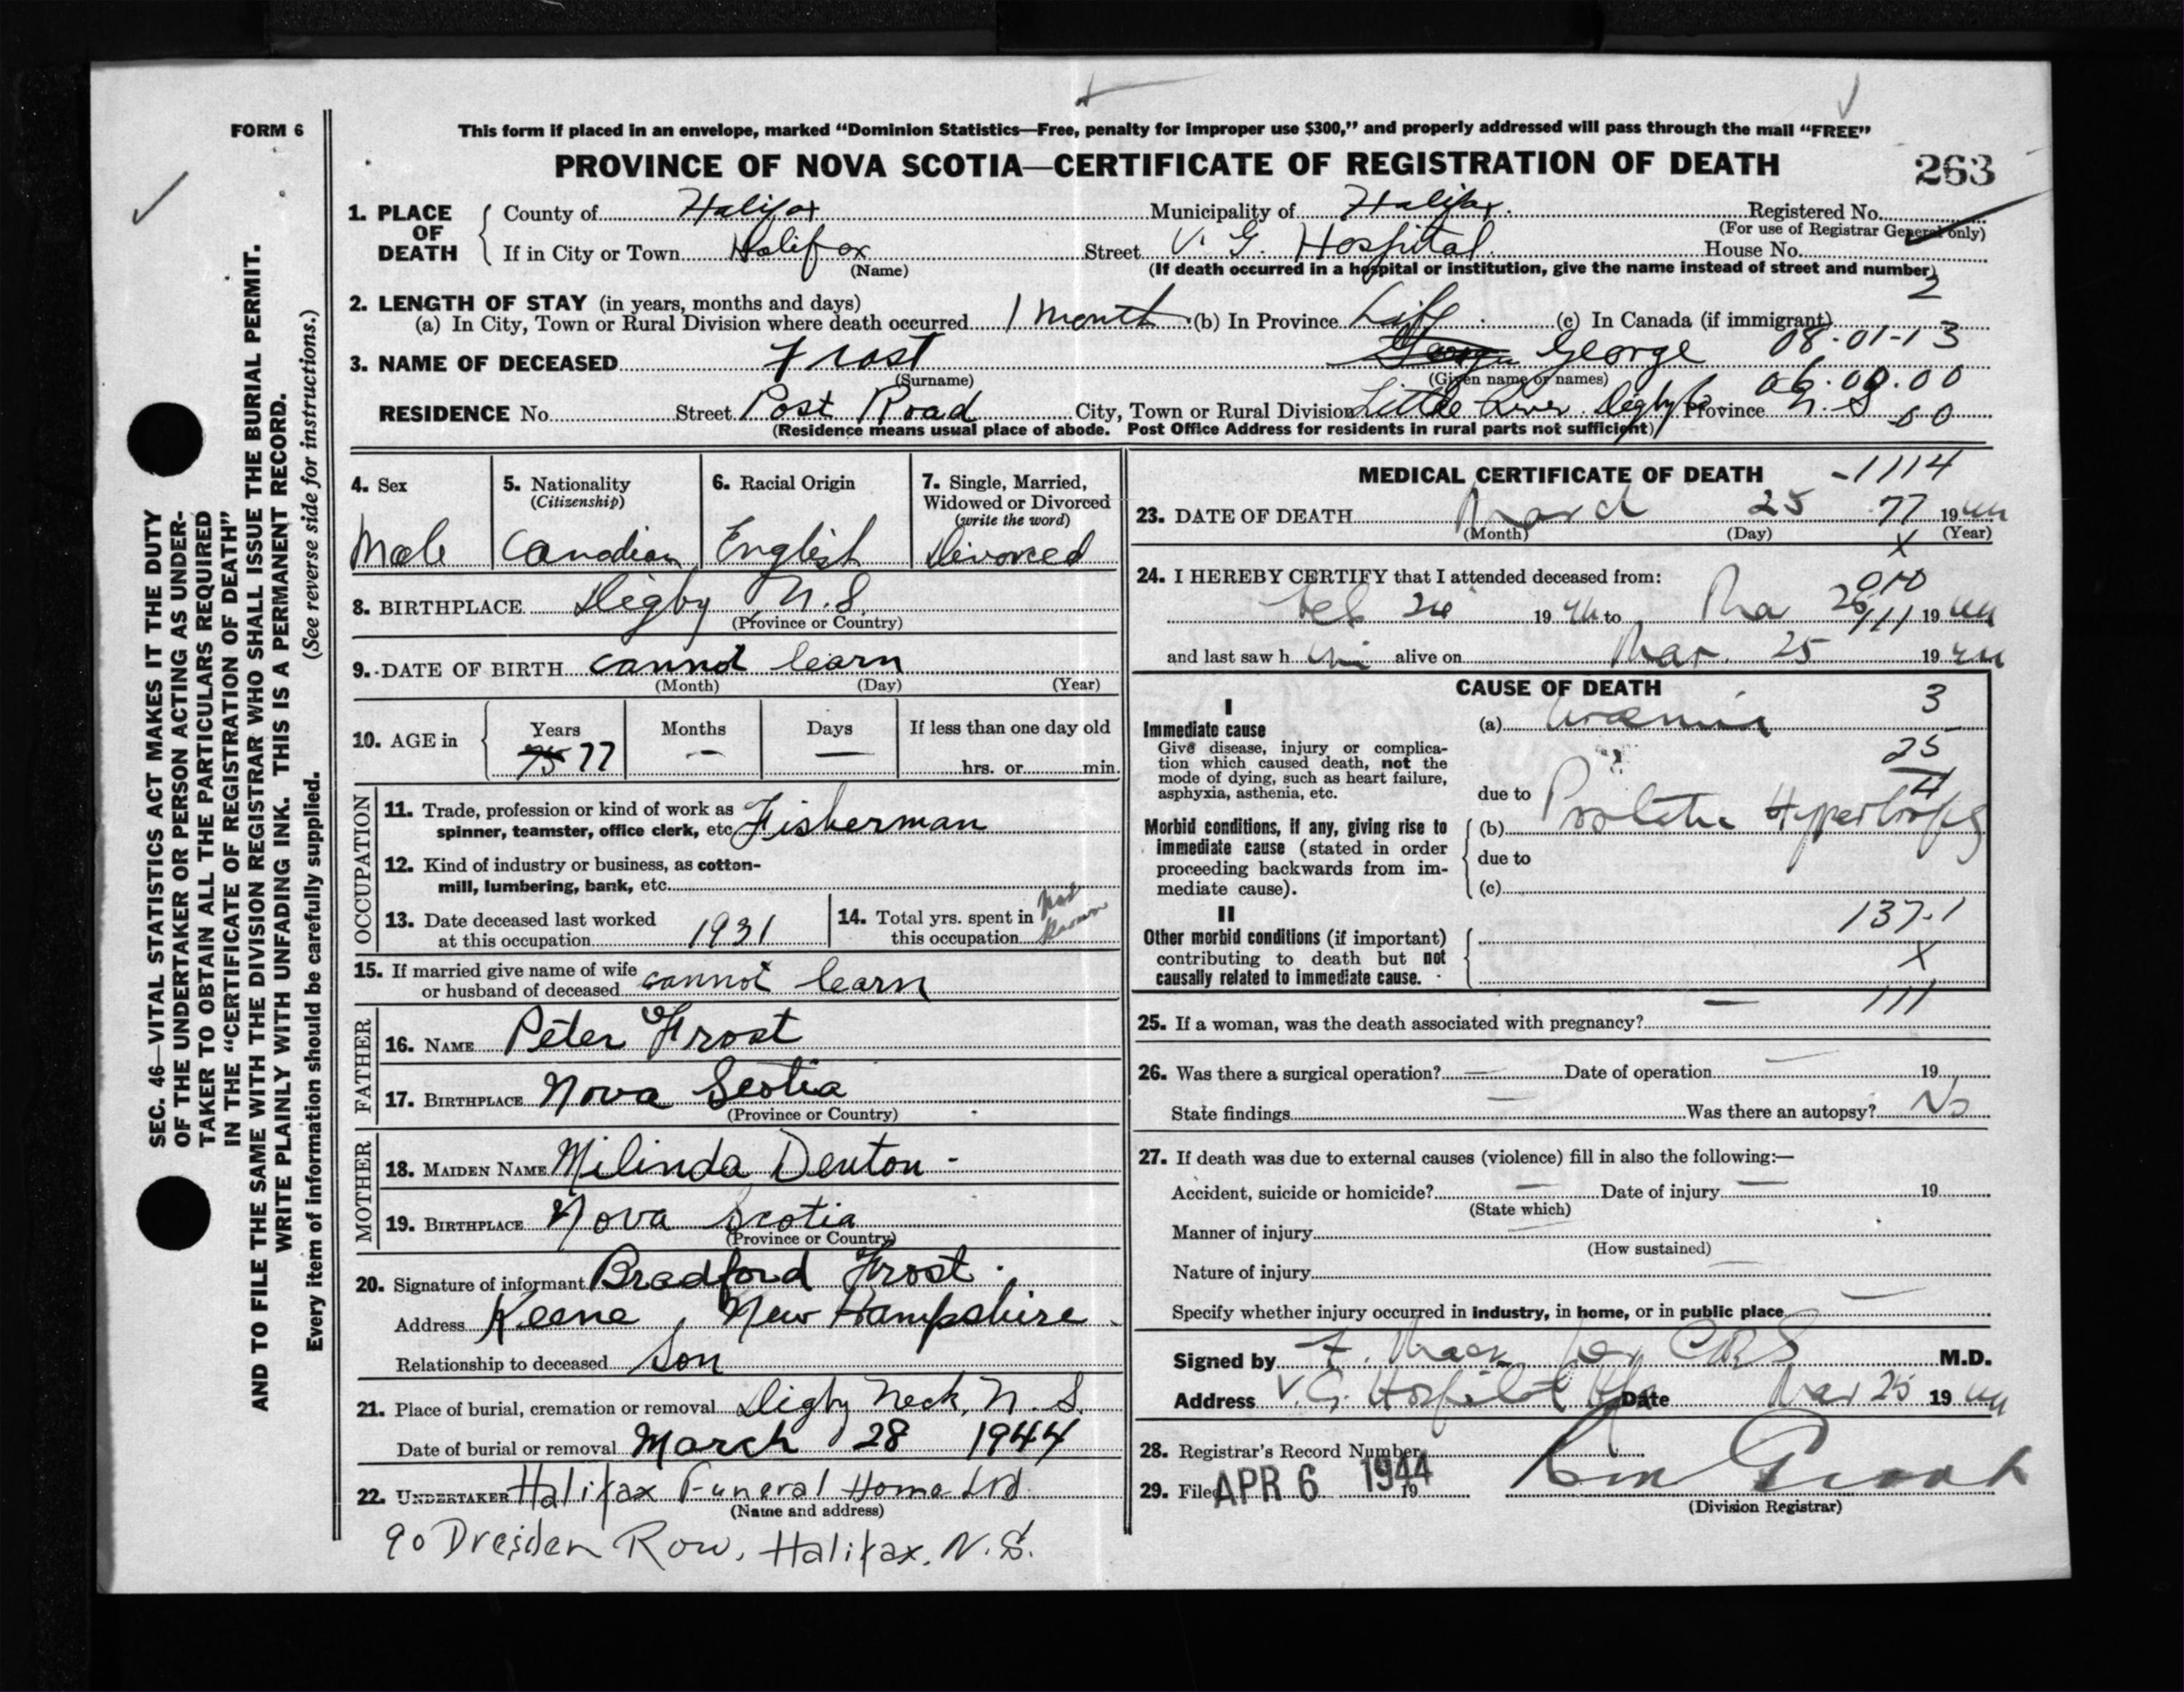 FORM 6
This form if placed in an envelope, marked "Dominion Statistics—Free, penalty for improper use $300," and properly addressed will pass through the mail "FREE"
PROVINCE OF NOVA SCOTIA—CERTIFICATE OF REGISTRATION OF DEATH
263
1. PLACE OF DEATH
County of Halifax Municipality of Halifax Registered No.
(For use of Registrar General only)
If in City or Town Halifax Street V. G. Hospital House No.
(Name) (If death occurred in a hospital or institution, give the name instead of street and number)
2
2. LENGTH OF STAY (in years, months and days)
(a) In City, Town or Rural Division where death occurred 1 month (b) In Province Life (c) In Canada (if immigrant)
08-01-13
3. NAME OF DECEASED Frost George
(Surname) (Given name or names)
06.00.00
RESIDENCE No. Street Post Road City, Town or Rural Division Little River Digby Co Province N. S 00
(Residence means usual place of abode. Post Office Address for residents in rural parts not sufficient)
4. Sex
Male
5. Nationality
(Citizenship)
Canadian
6. Racial Origin
English
7. Single, Married, Widowed or Divorced
(write the word)
Divorced
8. BIRTHPLACE Digby N.S.
(Province or Country)
9. DATE OF BIRTH cannot learn
(Month) (Day) (Year)
10. AGE in
Years Months Days If less than one day old
75 77 — — hrs. or min.
OCCUPATION
11. Trade, profession or kind of work as
spinner, teamster, office clerk, etc. Fisherman
12. Kind of industry or business, as cotton-
mill, lumbering, bank, etc.
13. Date deceased last worked
at this occupation 1931
14. Total yrs. spent in
this occupation Not Known
15. If married give name of wife
or husband of deceased cannot learn
FATHER
16. NAME Peter Frost
17. BIRTHPLACE Nova Scotia
(Province or Country)
MOTHER
18. MAIDEN NAME Milinda Denton -
19. BIRTHPLACE Nova Scotia
(Province or Country)
20. Signature of informant Bradford Frost.
Address Keene, New Hampshire
Relationship to deceased Son
21. Place of burial, cremation or removal Digby Neck, N. S.
Date of burial or removal March 28 1944
22. UNDERTAKER Halifax Funeral Home Ltd.
(Name and address)
90 Dresden Row, Halifax, N.S.
MEDICAL CERTIFICATE OF DEATH
-1114
23. DATE OF DEATH March 25 77 1944
(Month) (Day) (Year)
X
24. I HEREBY CERTIFY that I attended deceased from:
Feb 24 1944 to Mar 25 1944
111
and last saw h im alive on Mar. 25 1944
CAUSE OF DEATH
I
Immediate cause
Give disease, injury or complica-
tion which caused death, not the
mode of dying, such as heart failure,
asphyxia, asthenia, etc.
(a) Uraemia 3
25
4
due to
Morbid conditions, if any, giving rise to
immediate cause (stated in order
proceeding backwards from im-
mediate cause).
(b) Prostatic Hypertrophy
due to
(c)
II
Other morbid conditions (if important)
contributing to death but not
causally related to immediate cause.
137-1
X
111
25. If a woman, was the death associated with pregnancy? —
26. Was there a surgical operation? — Date of operation — 19
State findings — Was there an autopsy? No
27. If death was due to external causes (violence) fill in also the following:—
Accident, suicide or homicide? — Date of injury — 19
(State which)
Manner of injury
(How sustained)
Nature of injury
Specify whether injury occurred in industry, in home, or in public place
Signed by M.D.
Address V. G. Hospital Hfx Date Mar 25 1944
28. Registrar's Record Number
29. Filed APR 6 1944 19
(Division Registrar)
SEC. 46—VITAL STATISTICS ACT MAKES IT THE DUTY
OF THE UNDERTAKER OR PERSON ACTING AS UNDER-
TAKER TO OBTAIN ALL THE PARTICULARS REQUIRED
IN THE "CERTIFICATE OF REGISTRATION OF DEATH"
AND TO FILE THE SAME WITH THE DIVISION REGISTRAR WHO SHALL ISSUE THE BURIAL PERMIT.
WRITE PLAINLY WITH UNFADING INK. THIS IS A PERMANENT RECORD.
Every item of information should be carefully supplied. (See reverse side for instructions.)